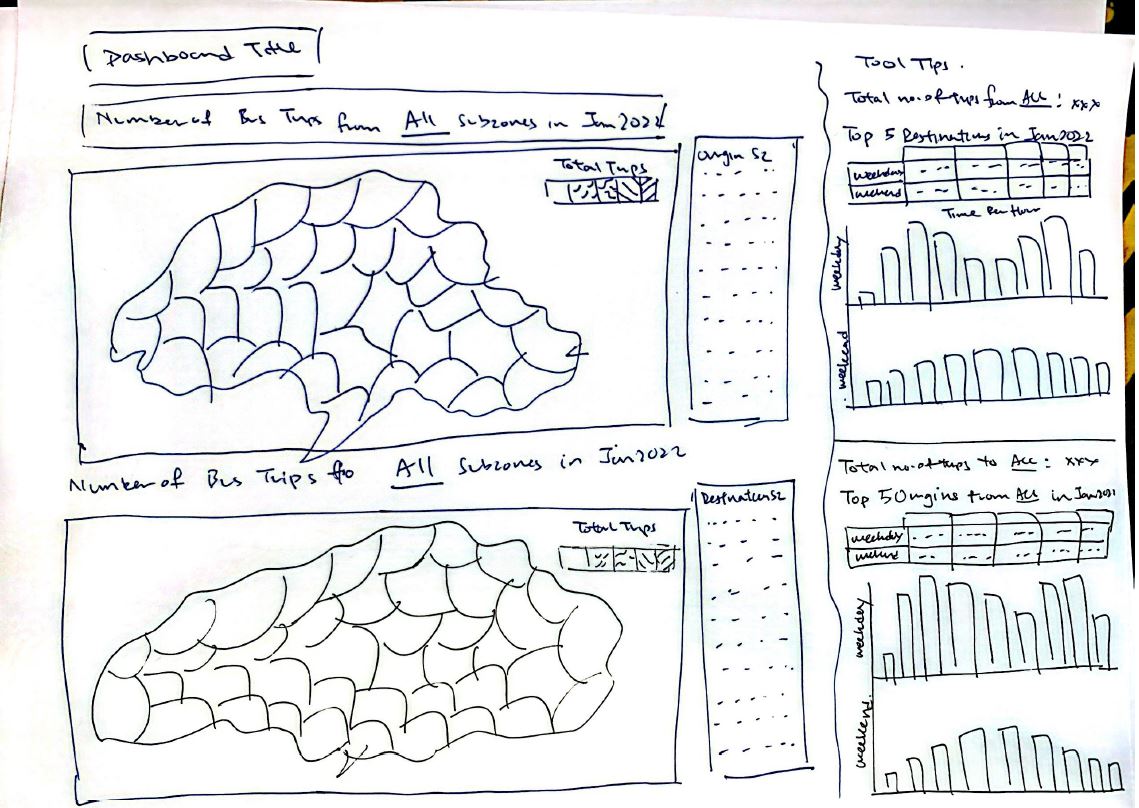 Dashboard Title
Number of Bus Trips from All Subzones in Jan 2022
Total Trips
Origin SZ
Number of Bus Trips to All Subzones in Jan 2022
Total Trips
Destination SZ
Tool Tips.
Total no. of trips from ALL : xxx
Top 5 Destinations in Jan 2022
weekdays
weekend
Time Per Hour
weekday
weekend
Total no. of trips to ALL : xxx
Top 5 Origins from ALL in Jan 2021
weekday
weekend
weekday
weekend